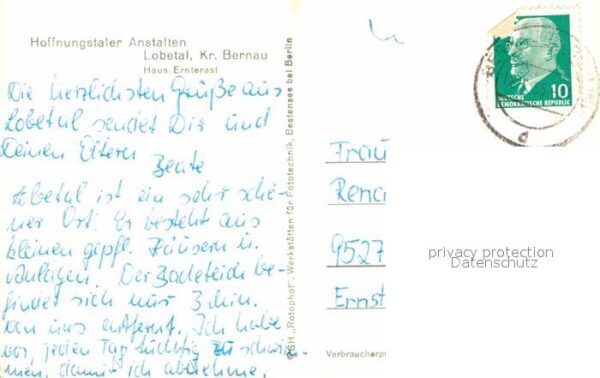 Hoffnungstaler Anstalten
Lobetal, Kr. Bernau
Haus Ernterast
Die herzlichsten Grüße aus
Lobetal sendet Dir und
Deinen Eltern
Beate
Lobetal ist ein sehr schö-
ner Ort. Er besteht aus
kleinen gepfl. Häusern u.
Anlagen. Der Badeteich be-
findet sich nur 3 Min.
von uns entfernt. Ich habe
vor, jeden Tag tüchtig zu schwim-
men, damit ich abnehme.
PGH „Rotophot", Werkstätten für Fototechnik, Bestensee bei Berlin
10
DEUTSCHE
DEMOKRATISCHE REPUBLIK
d
Frau
Rena
9527
Ernst
privacy protection
Datenschutz
Verbraucherpr